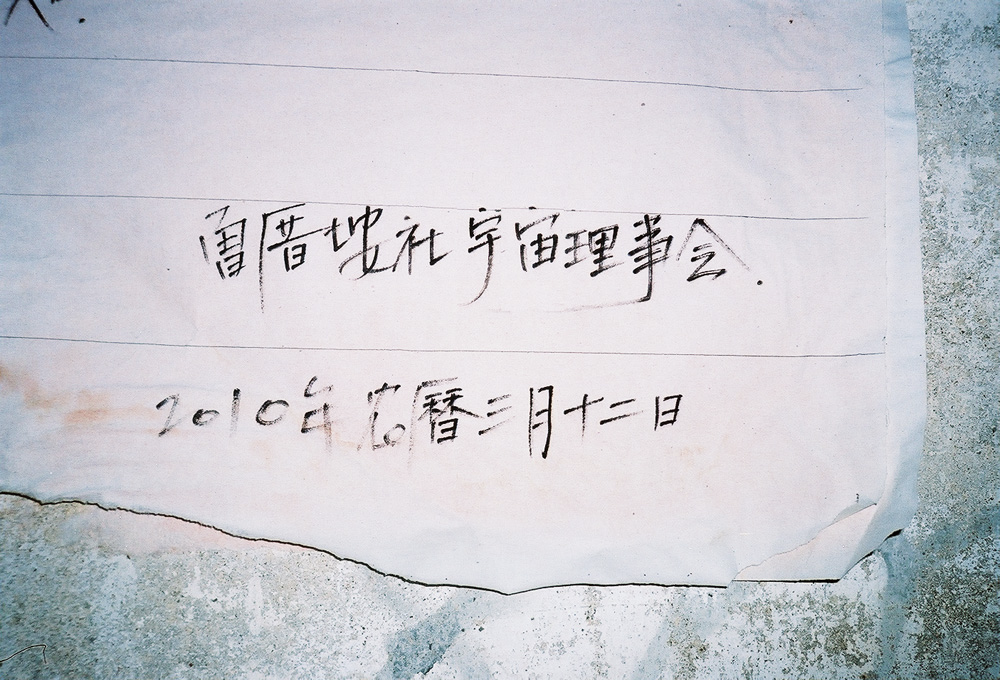 曾厝垵社宇宙理事会.
2010年农曆三月十二日